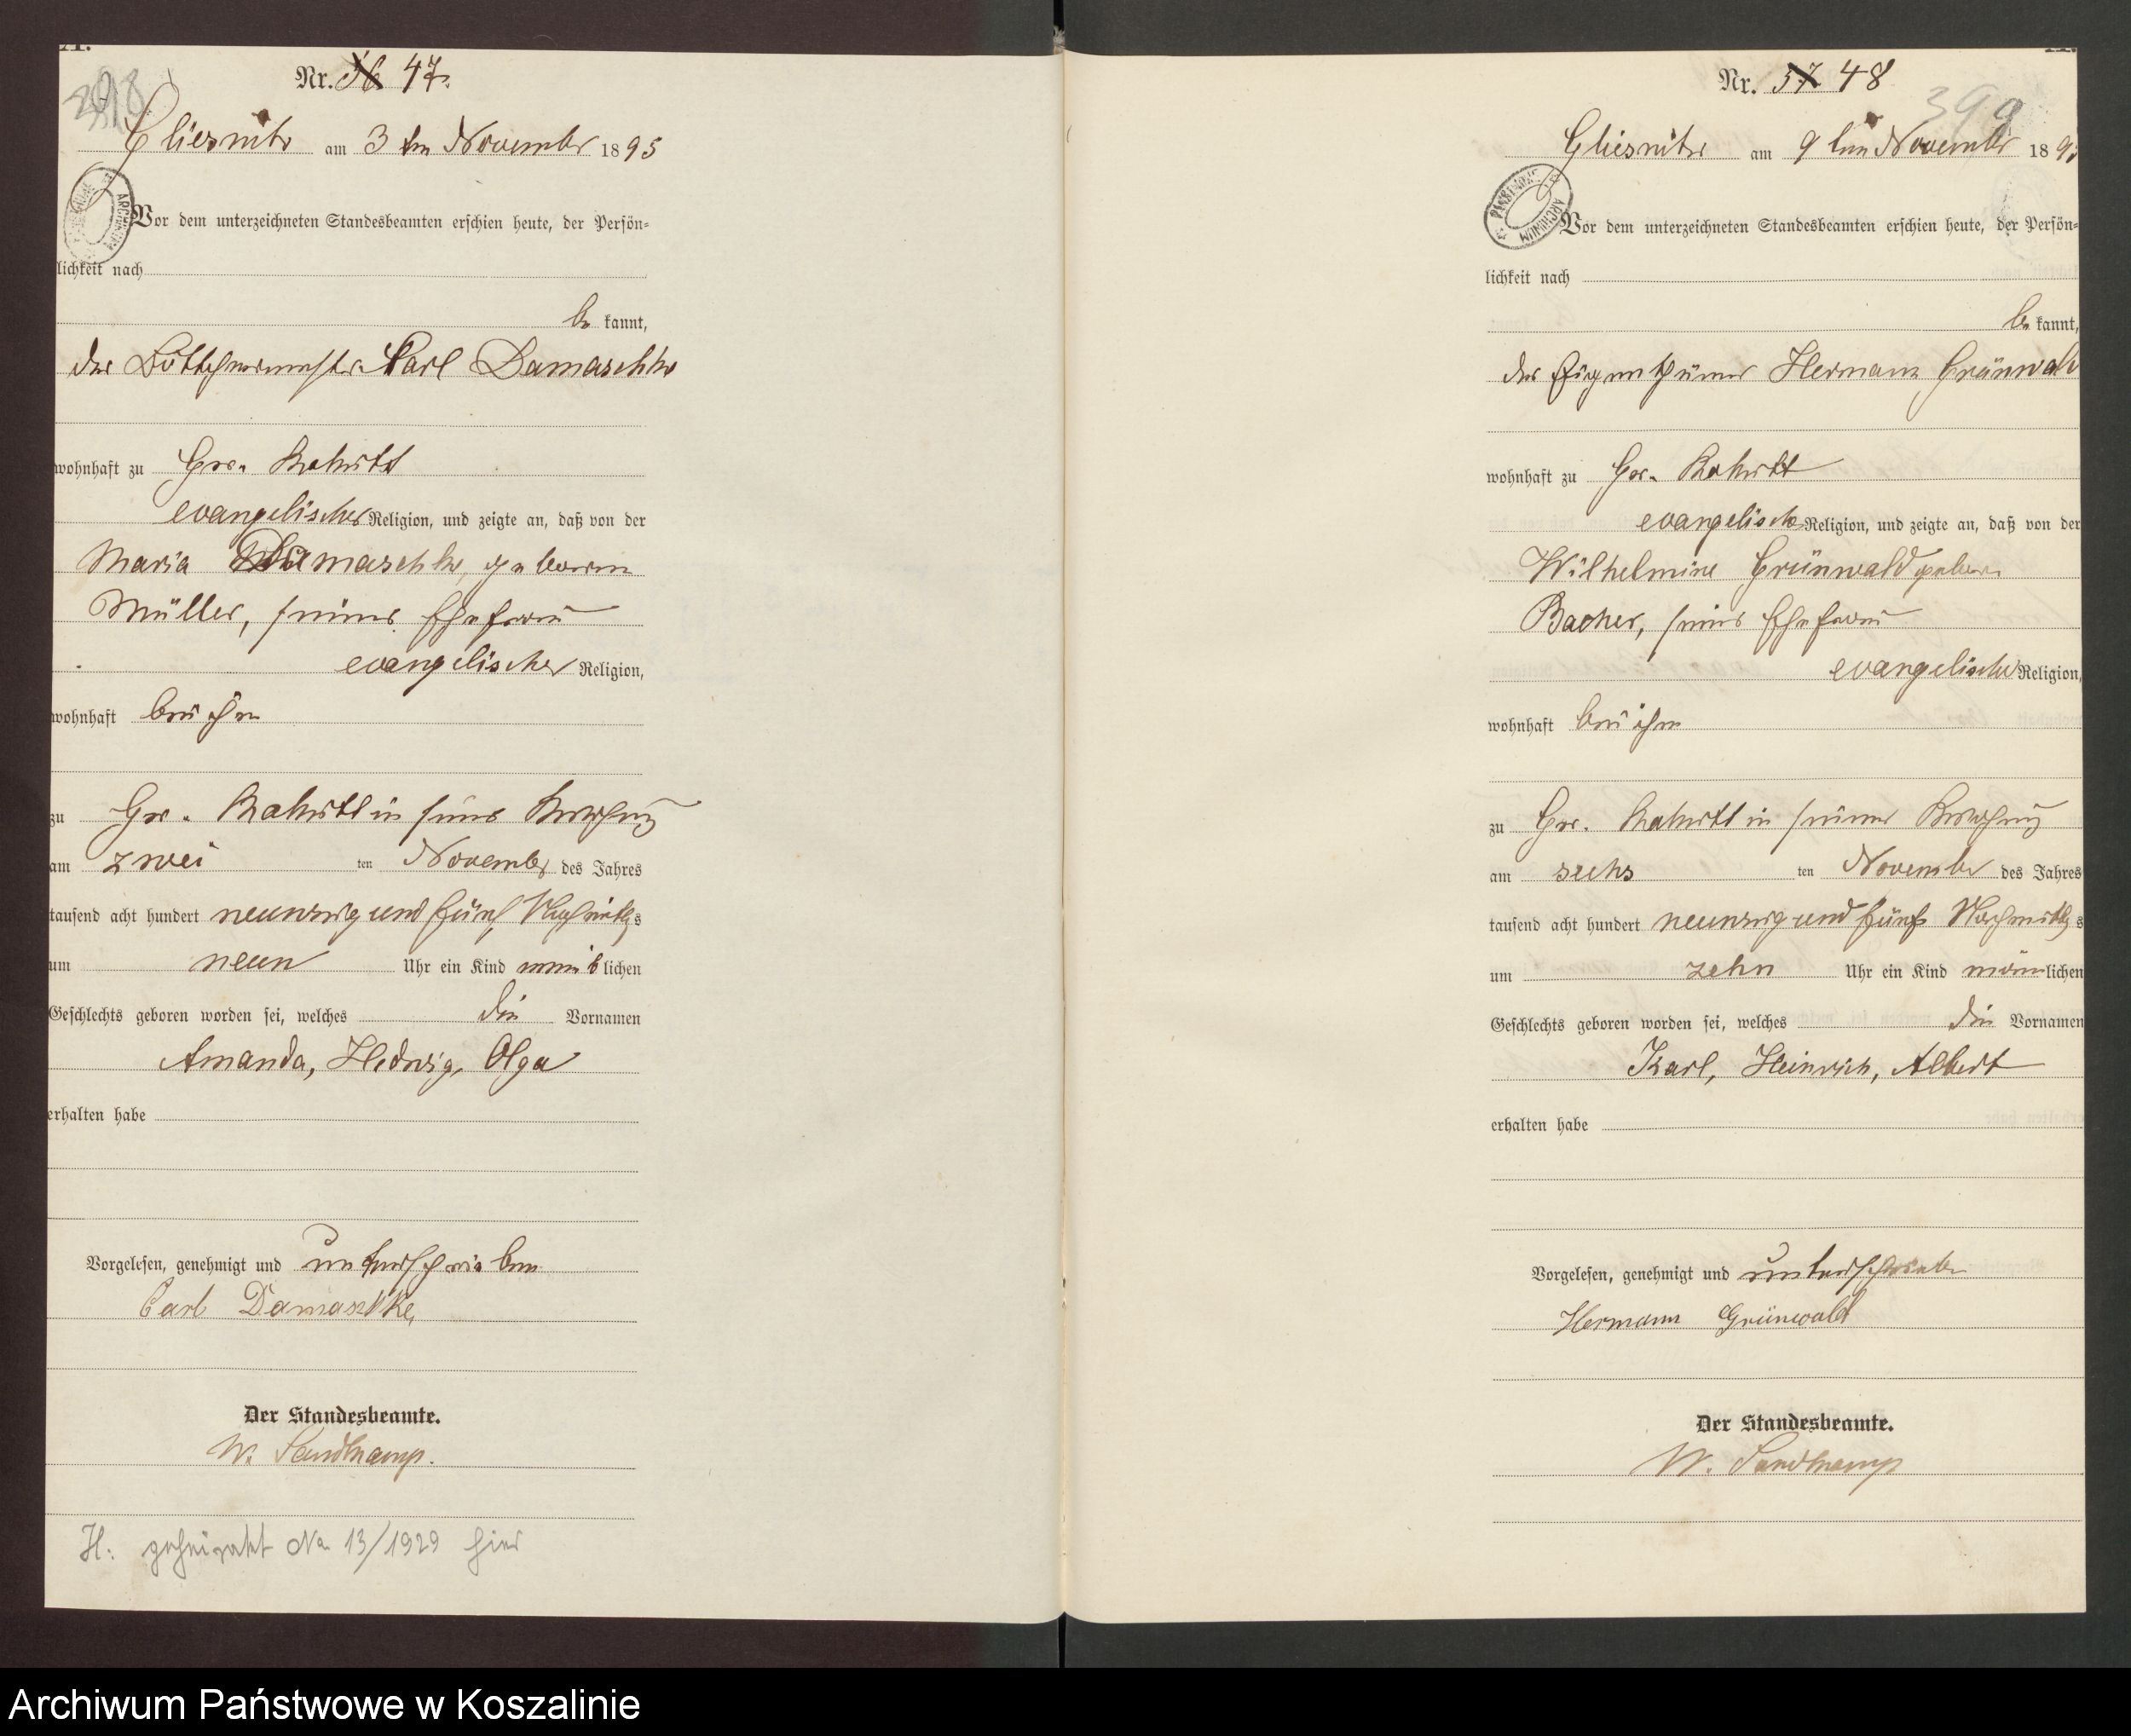 A.
398
Nr. 56 47.
Gliesnitz am 3 ten November 1895
ARCHIWUM
Vor dem unterzeichneten Standesbeamten erschien heute, der Persön-
lichkeit nach
be kannt,
der Böttchermeister Carl Damaschke
wohnhaft zu Gr. Rakitt
evangelischer Religion, und zeigte an, daß von der
Maria Damaschke, geborene
Müller, seiner Ehefrau
evangelischer Religion,
wohnhaft bei ihm
zu Gr. Rakitt in seiner Behausung
am zwei ten November des Jahres
tausend acht hundert neunzig und fünf Nachmittags
um neun Uhr ein Kind weiblichen
Geschlechts geboren worden sei, welches die Vornamen
Amanda, Hedwig, Olga
erhalten habe
Vorgelesen, genehmigt und unterschrieben
Carl Damaschke,
Der Standesbeamte.
W. Sandkamp.
H: geheiratet No 13/1929 hier
Nr. 57 48
399
Gliesnitz am 9 ten November 189
PAŃSTWOWE
ARCHIWUM
Vor dem unterzeichneten Standesbeamten erschien heute, der Persön-
lichkeit nach
be kannt,
der Eigenthümer Hermann Grünwald
wohnhaft zu Gr. Rakitt
evangelischer Religion, und zeigte an, daß von der
Wilhelmine Grünwald geboren
Bacher, seiner Ehefrau
evangelischer Religion,
wohnhaft bei ihm
zu Gr. Rakitt in seiner Behausung
am sechs ten November des Jahres
tausend acht hundert neunzig und fünf Nachmittags
um zehn Uhr ein Kind männlichen
Geschlechts geboren worden sei, welches die Vornamen
Karl, Heinrich, Albert
erhalten habe
Vorgelesen, genehmigt und unterschrieben
Hermann Grünwald
Der Standesbeamte.
W. Sandkamp
Archiwum Państwowe w Koszalinie